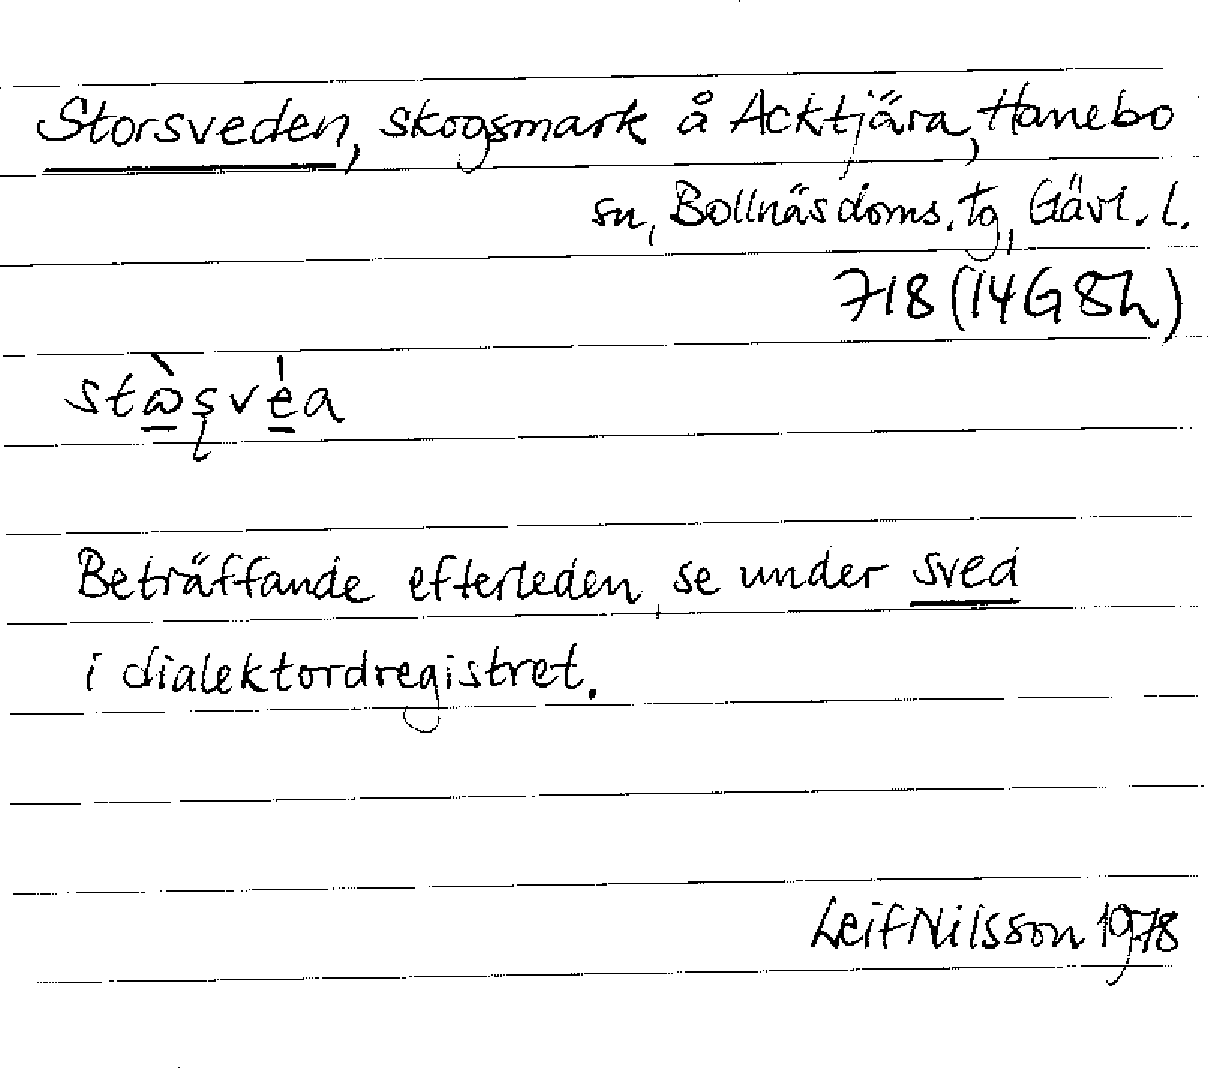 Storsveden, skogsmark å Acktjära, Hanebo
sn, Bollnäs doms. tg, Gävl. l.
718 (14G8h)
Beträffande efterleden, se under sved
i dialektordregistret.
Leif Nilsson 1978